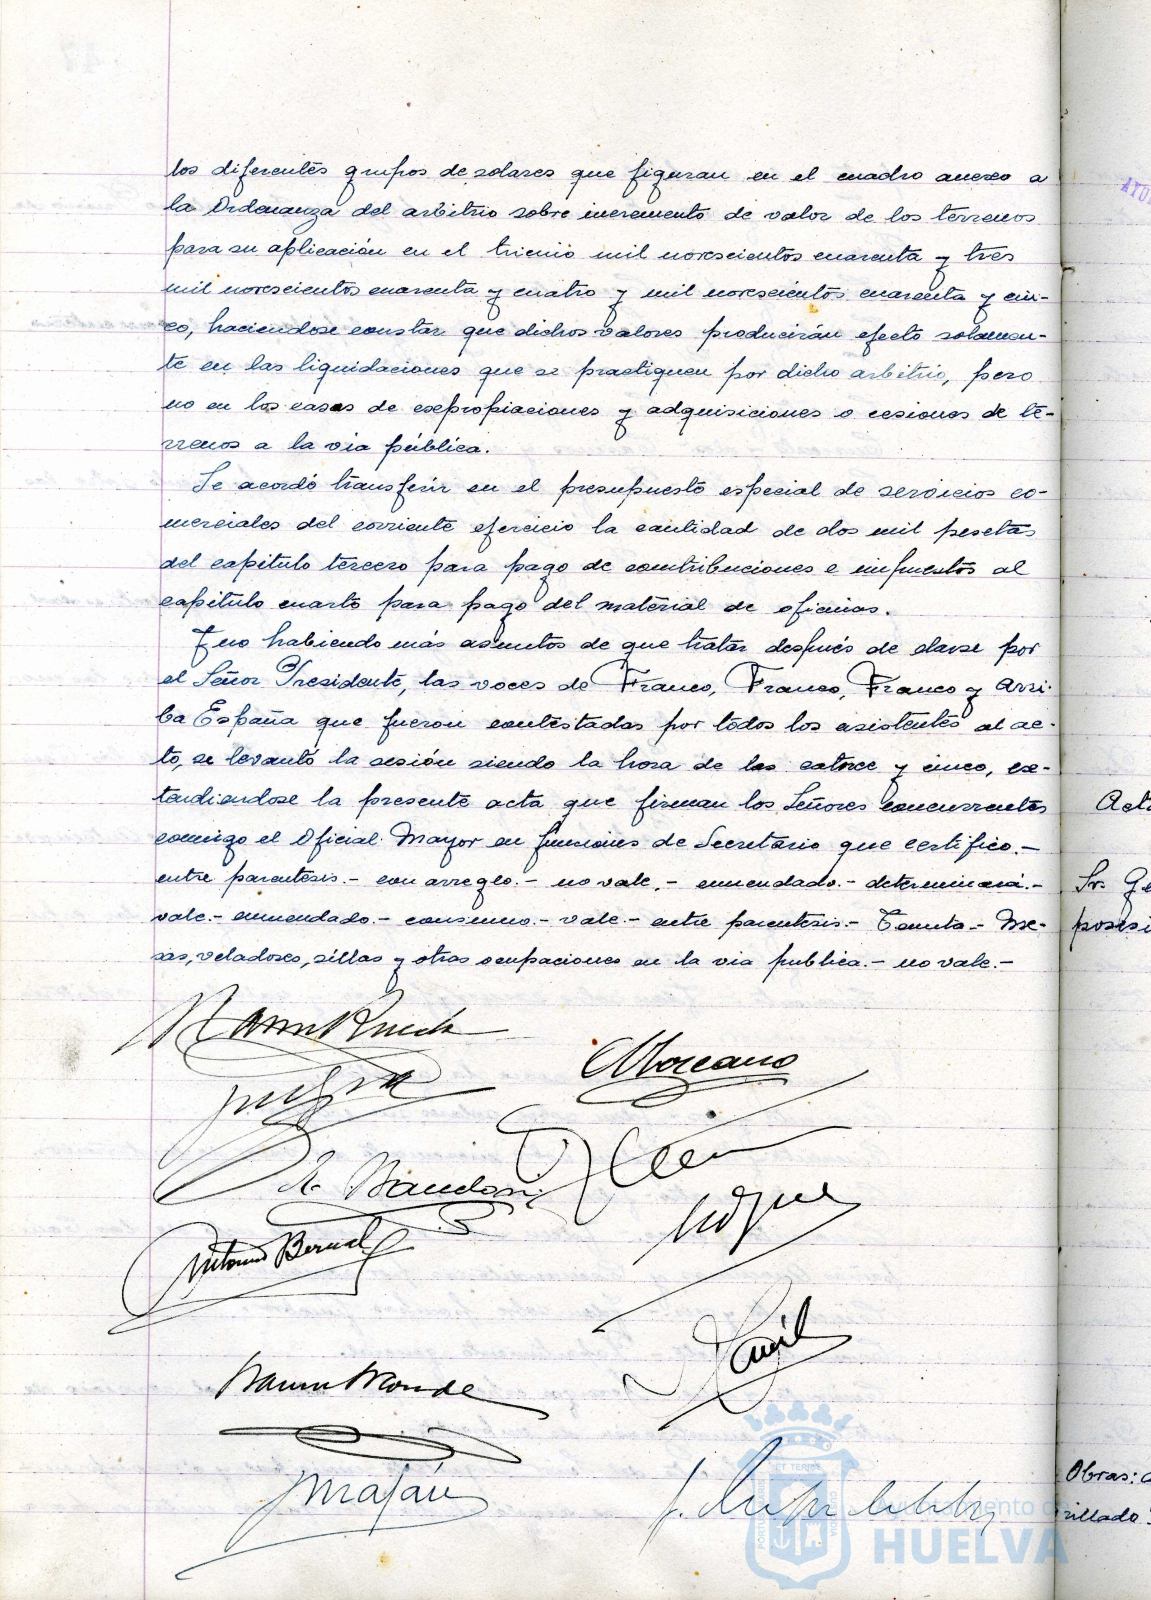 los diferentes grupos de solares que figuran en el cuadro anexo a
la Ordenanza del arbitrio sobre incremento de valor de los terrenos
para su aplicación en el trienio mil novescientos cuarenta y tres
mil novescientos cuarenta y cuatro y mil novescientos cuarenta y cin-
co, haciendose constar que dichos valores producirán efecto solamen-
te en las liquidaciones que se practiquen por dicho arbitrio, pero
no en los casos de expropiaciones y adquisiciones o cesiones de te-
rrenos a la via pública.
Se acordó transferir en el presupuesto especial de servicios co-
merciales del corriente ejercicio la cantidad de dos mil pesetas
del capitulo tercero para pago de contribuciones e impuestos al
capitulo cuarto para pago del material de oficinas.
Y no habiendo más asuntos de que tratar después de darse por
el Señor Presidente, las voces de Franco, Franco, Franco y Arri-
ba España que fueron contestadas por todos los asistentes al ac-
to, se levantó la sesión siendo la hora de las catorce y cinco, ex-
tendiendose la presente acta que firman los Señores concurrentes
conmigo el Oficial Mayor en funciones de Secretario que certifico.-
entre parentesis.- con arreglo.- no vale.- enmendado.- determinará.-
vale.- enmendado.- consumo.- vale.- entre parentesis.- Tenuta.- Me-
sas, veladores, sillas y otras ocupaciones en la via publica.- no vale.-
A. Morcano
Antonio Bernal
Obras:
rillado
Ayuntamiento de
HUELVA